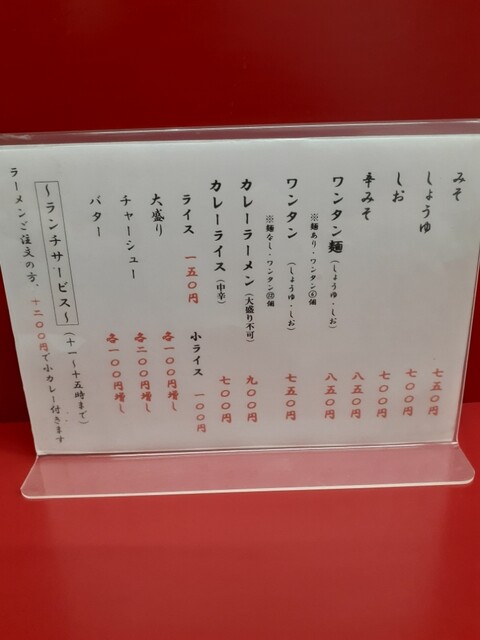 みそ 七五〇円
しょうゆ 七〇〇円
しお 七〇〇円
辛みそ 八五〇円
ワンタン麺(しょうゆ・しお) 八五〇円
※麺あり・ワンタン⑥個
ワンタン (しょうゆ・しお) 七五〇円
※麺なし・ワンタン⑫個
カレーラーメン(大盛り不可) 九〇〇円
カレーライス(中辛) 七〇〇円
ライス 一五〇円 小ライス 一〇〇円
大盛り 各一〇〇円増し
チャーシュー 各二〇〇円増し
バター 各一〇〇円増し
~ランチサービス~(十一~十五時まで)
ラーメンご注文の方、+二〇〇円で小カレー付きます